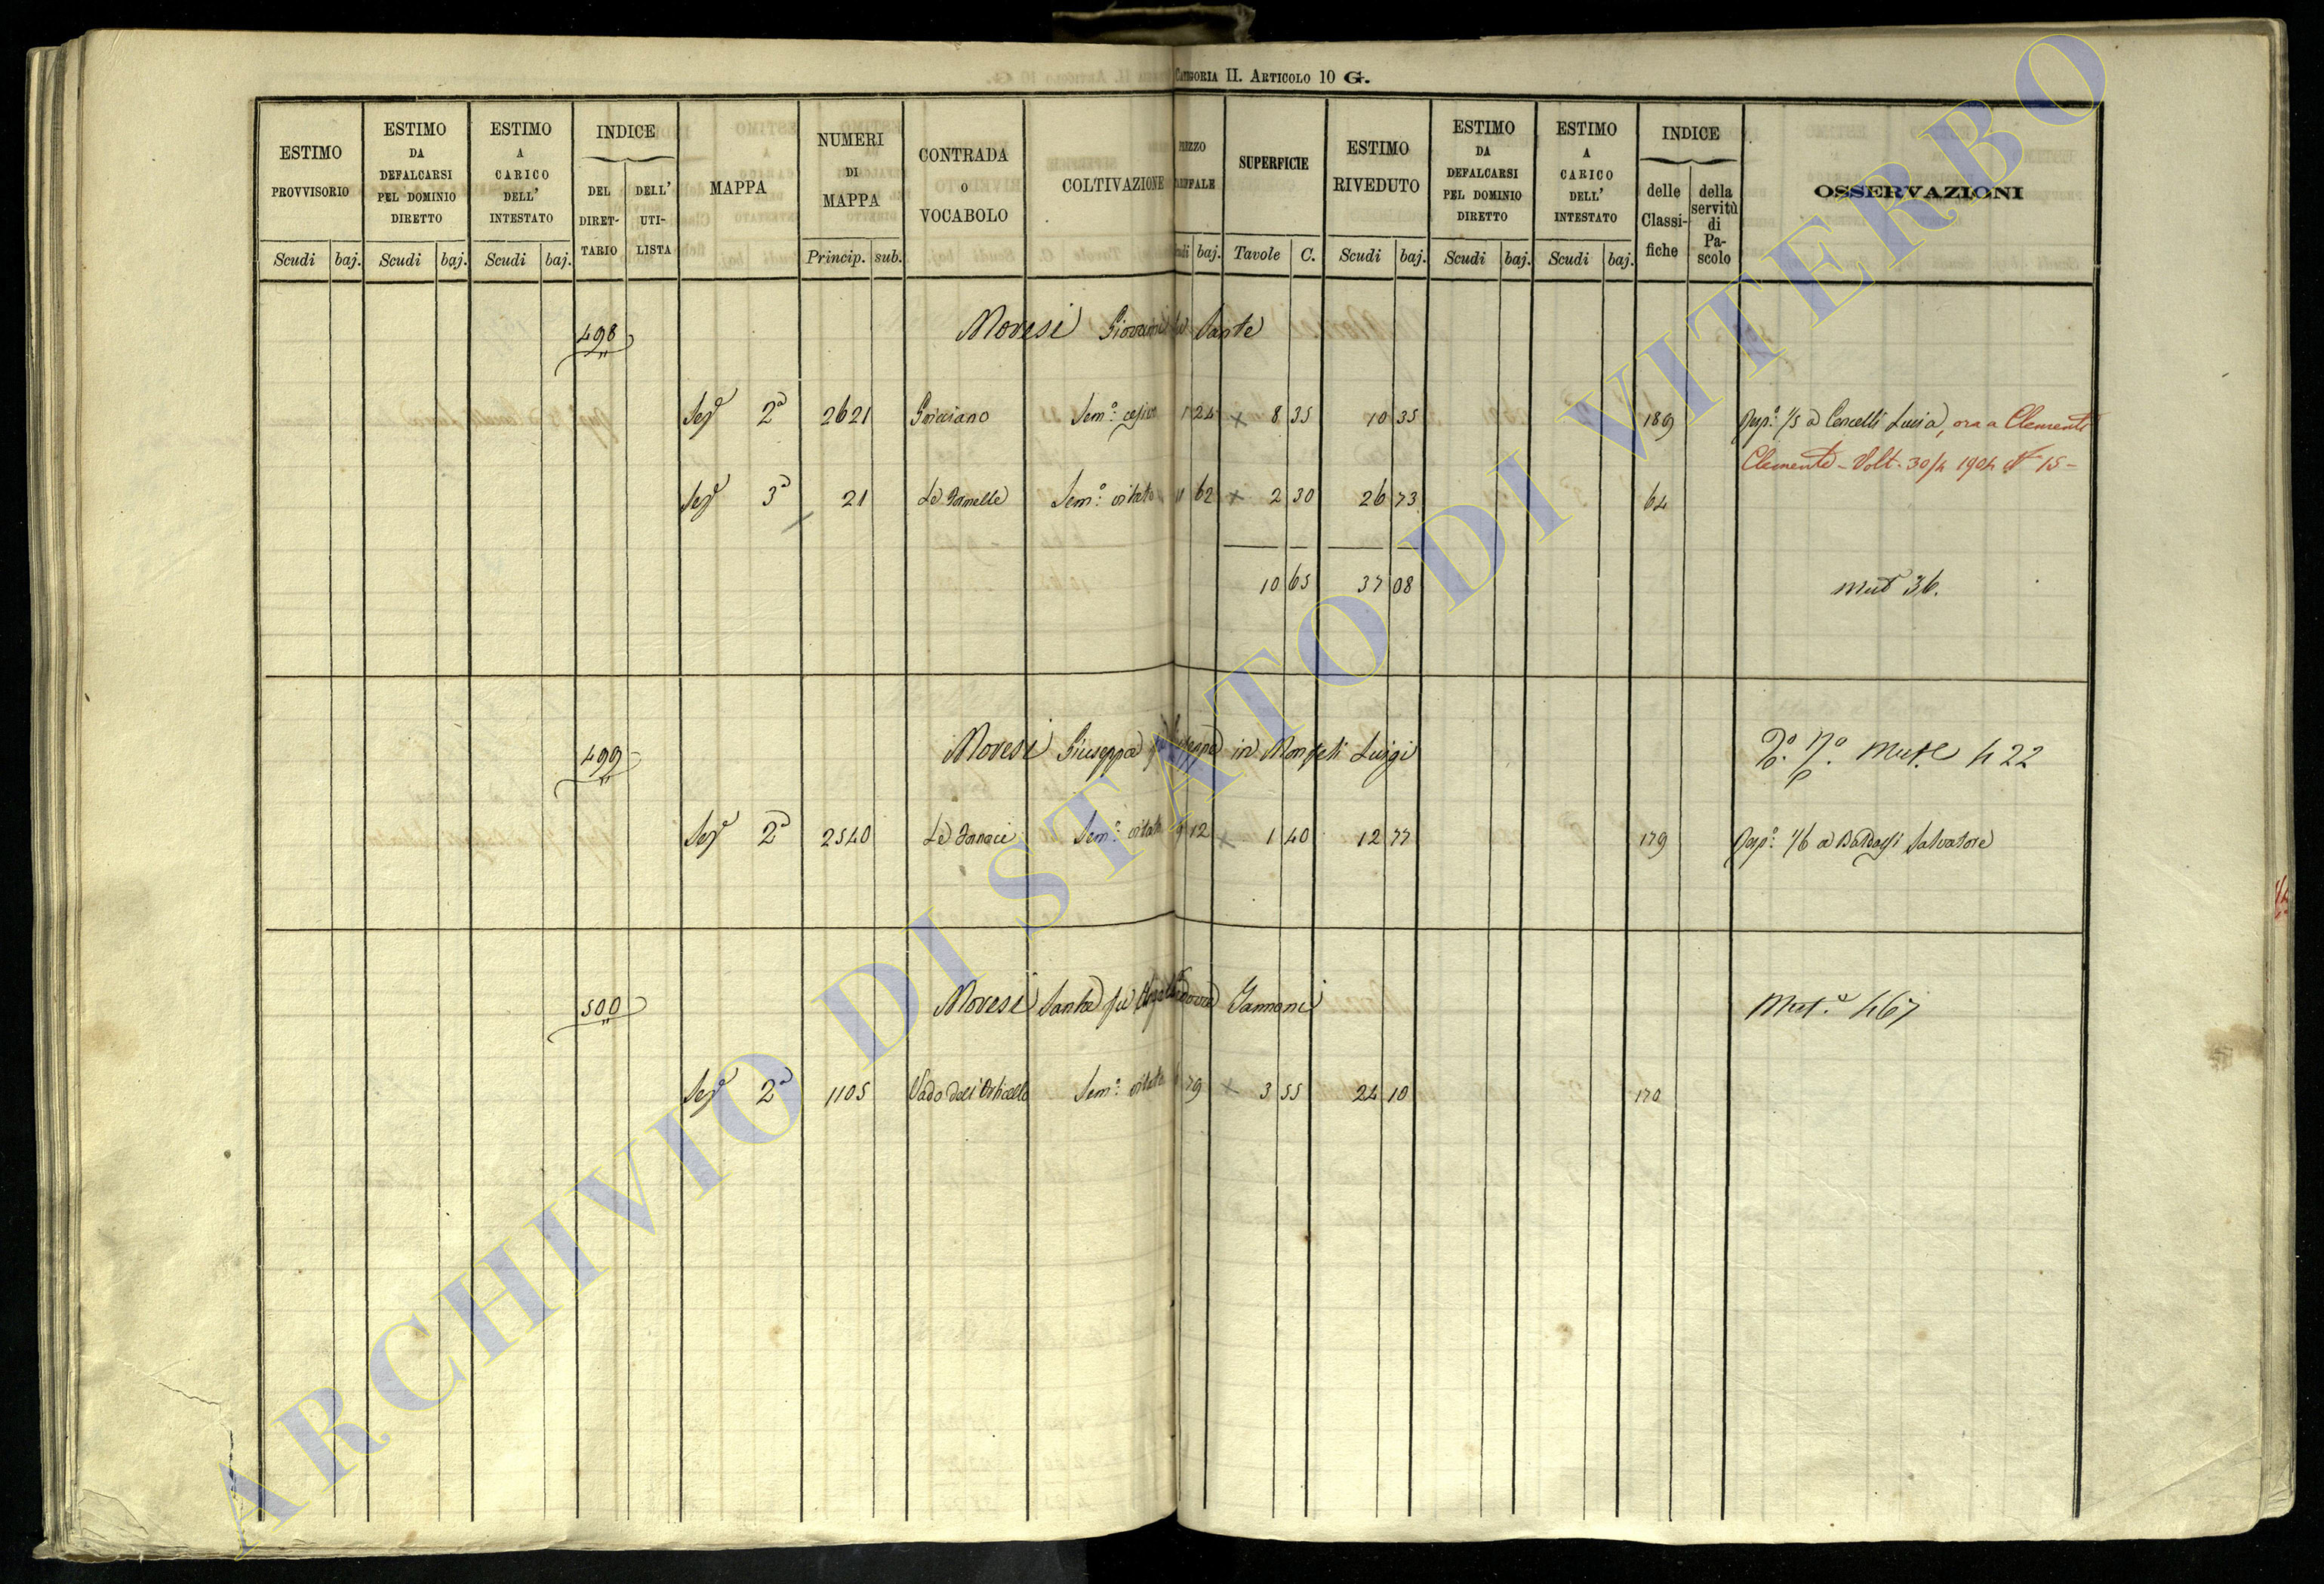 CATEGORIA II. ARTICOLO 10 G.
ESTIMO PROVVISORIO
Scudi baj.
ESTIMO DA DEFALCARSI PEL DOMINIO DIRETTO
Scudi baj.
ESTIMO A CARICO DELL' INTESTATO
Scudi baj.
INDICE
DEL DIRET-TARIO
DELL' UTI-LISTA
MAPPA
NUMERI DI MAPPA
Princip. sub.
CONTRADA O VOCABOLO
COLTIVAZIONE
baj.
SUPERFICIE
Tavole C.
ESTIMO RIVEDUTO
Scudi baj.
ESTIMO DA DEFALCARSI PEL DOMINIO DIRETTO
Scudi baj.
ESTIMO A CARICO DELL' INTESTATO
Scudi baj.
INDICE
delle Classi-fiche
della servitù di Pa-scolo
OSSERVAZIONI
498 Moresi Giovanni Sante
Sez.e 2a 2621 Sem.o 1 24 × 8 35 10 35 189 Risp. 1/5 a Cencelli Lucia, ora a Clementi
Clemente - Volt. 30/4 1904 N 15 -
Sez.e 3a 21 Le Fornelle Sem.o vitato 11 62 × 2 30 26 73 64
10 65 37 08 Mut 36.
499 Moresi Giuseppa in Luigi 422
Sez.e 2a 2540 Le Fornaci Sem.o vitato 9 12 × 1 40 12 77 179 Risp. 1/6 a Salvatore
500 Moresi Santa fu Iannoni Mut.a 467
Sez.e 2a 1105 Vado dell'Orticello Sem.o vitato 79 × 3 55 24 10 170
ARCHIVIO DI STATO DI VITERBO